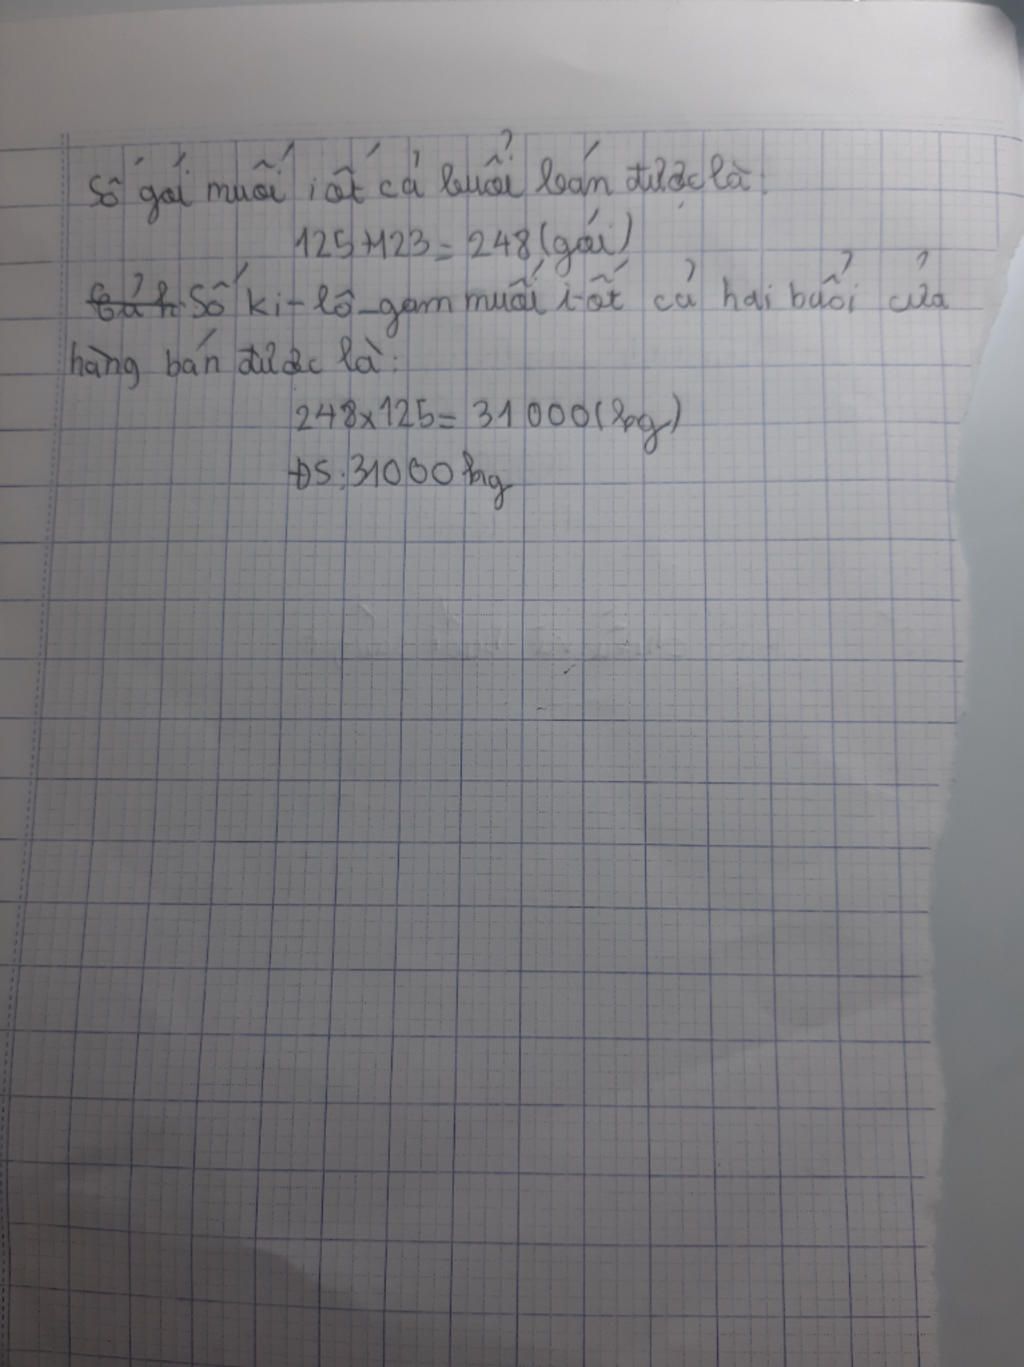 Số gói muối i ốt cả buổi bán được là:
125+123=248(gói)
Số ki-lô-gam muối i-ốt cả hai buổi cửa
hàng bán được là:
248x125=31000(kg)
ĐS:31000kg